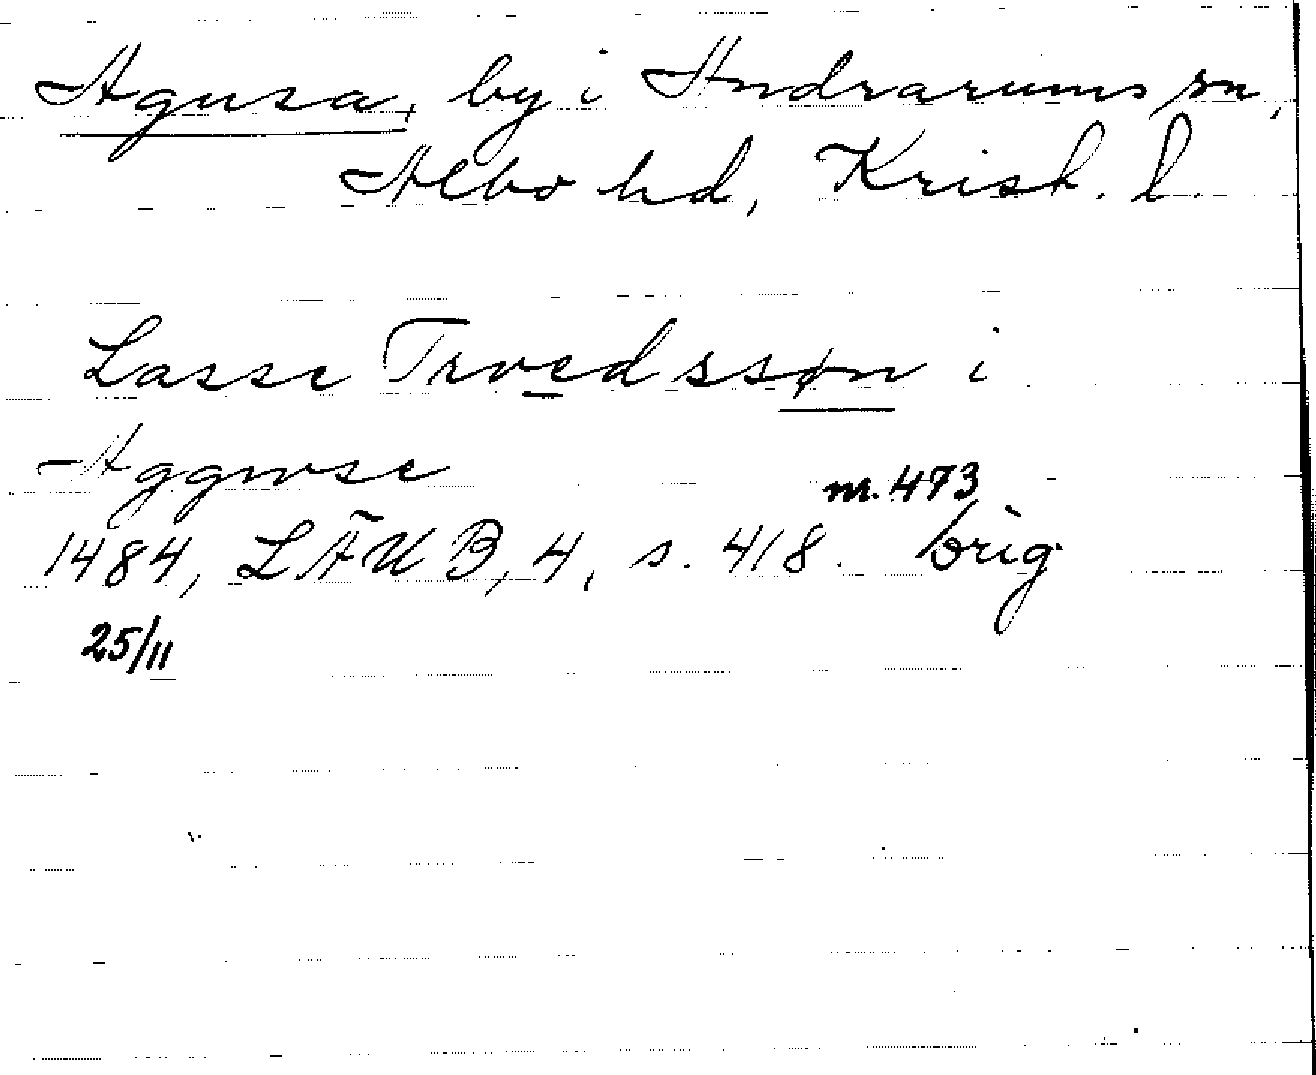 Agusa, by i Andrarums sn,
Albo hd, Krist. l.
Lasse Troedssøn i
Aggwse
nr. 473
1484, LÄUB, 4, s. 418. orig
25/11